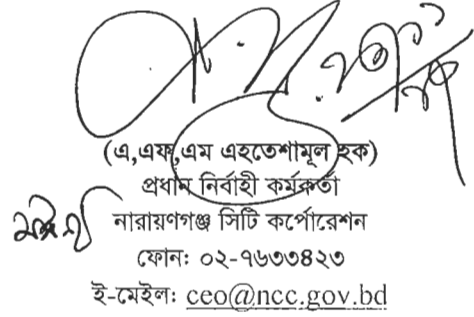 (এ,এফ,এম এহতেশামূল হক)
প্রধান নির্বাহী কর্মকর্তা
নারায়ণগঞ্জ সিটি কর্পোরেশন
ফোনঃ ০২-৭৬৩৩৪২৩
ই-মেইল: ceo@ncc.gov.bd